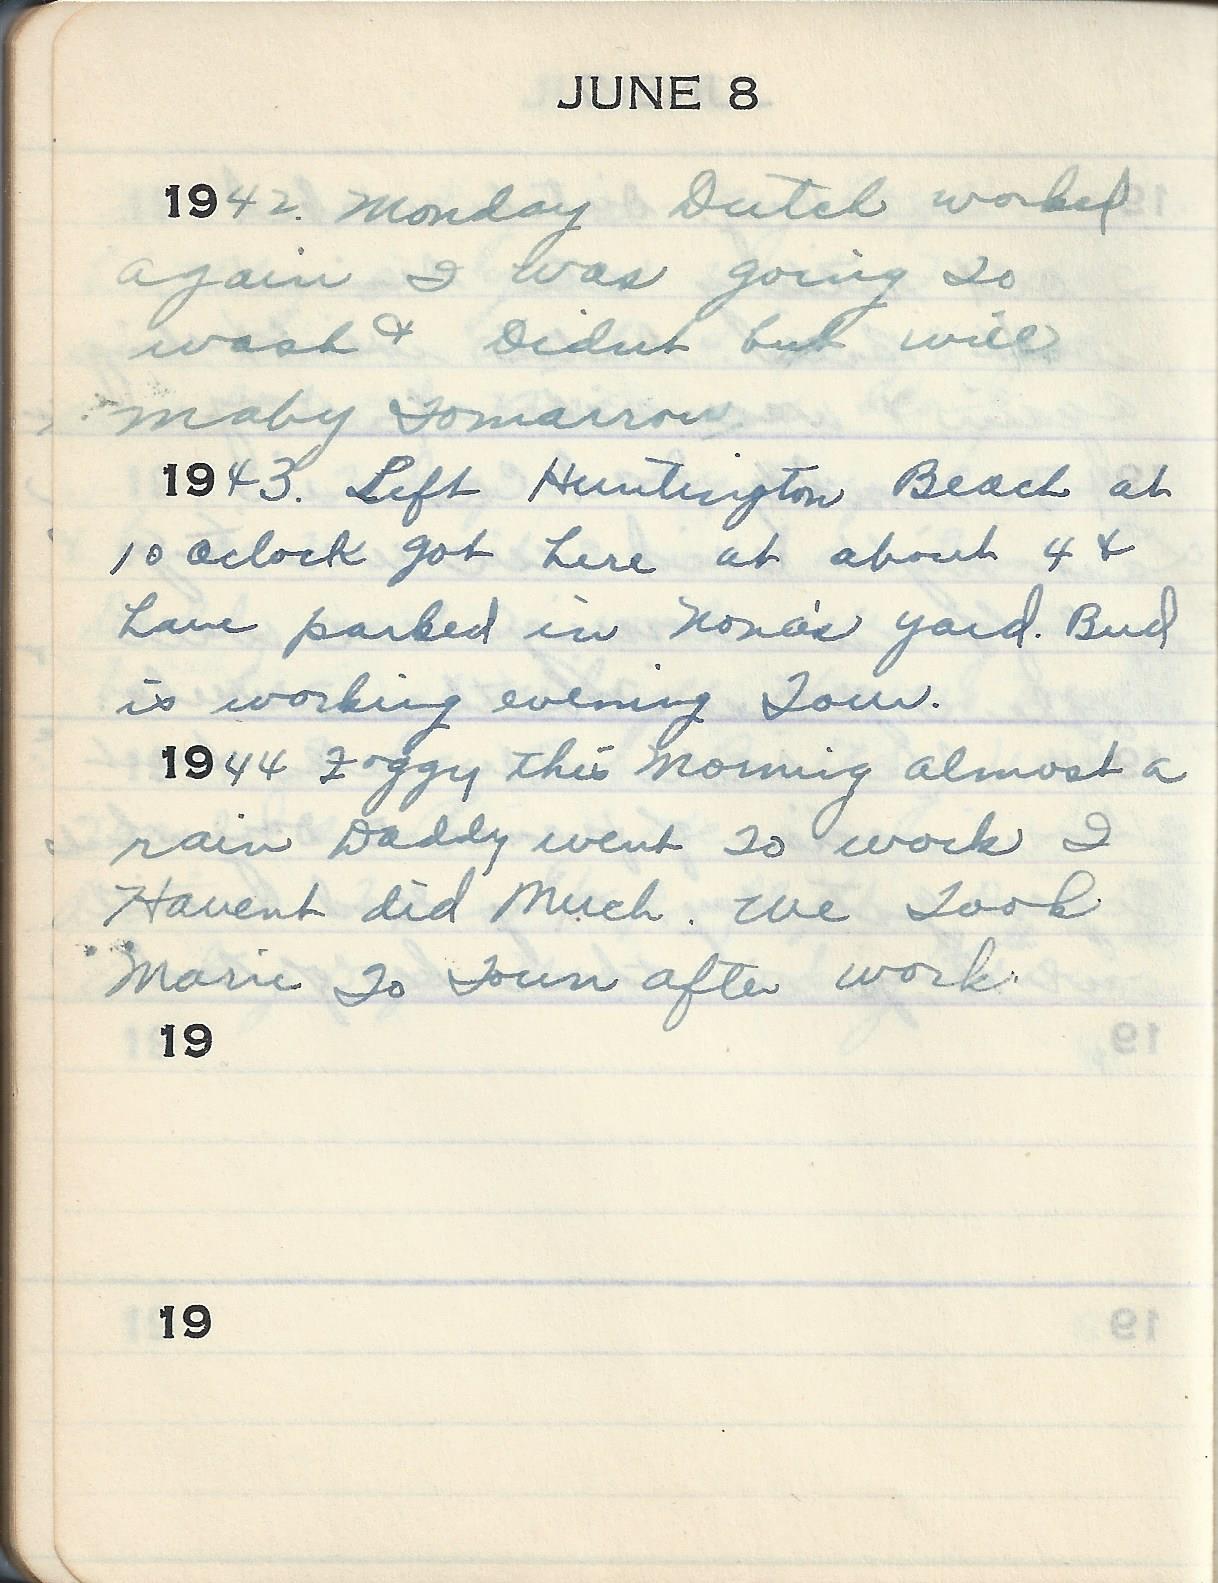 JUNE 8
1942. Monday Dutch worked
again I was going to
wash & Didnt but will
maby tomarrow
1943. Left Huntington Beach at
10 oclock got here at about 4 &
have parked in Nona's yard. Bud
is working evening Tour.
1944 Foggy this Morning almost a
rain Daddy went to work I
Havent did Much. We Took
Marie To Town after work.
19
19